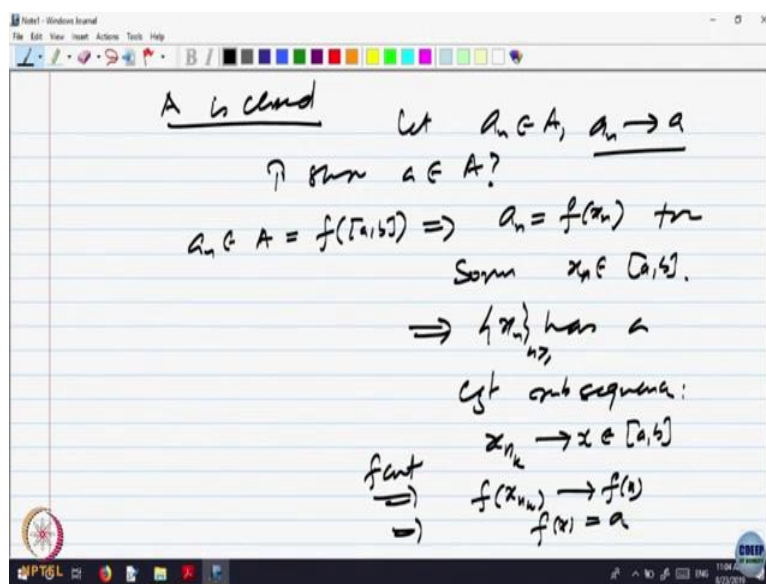 Note1 - Windows Journal
File Edit View Insert Actions Tools Help
A is closed
Let aₙ ∈ A, aₙ → a
To show a ∈ A?
aₙ ∈ A = f([a,b]) ⇒ aₙ = f(xₙ) for
some xₙ ∈ [a,b].
⇒ {xₙ}ₙ≥₁ has a
cgt subsequence:
xₙₖ → x ∈ [a,b]
f cont
⇒ f(xₙₖ) → f(x)
⇒ f(x) = a
NPTEL
CDEEP
ENG
8/23/2019